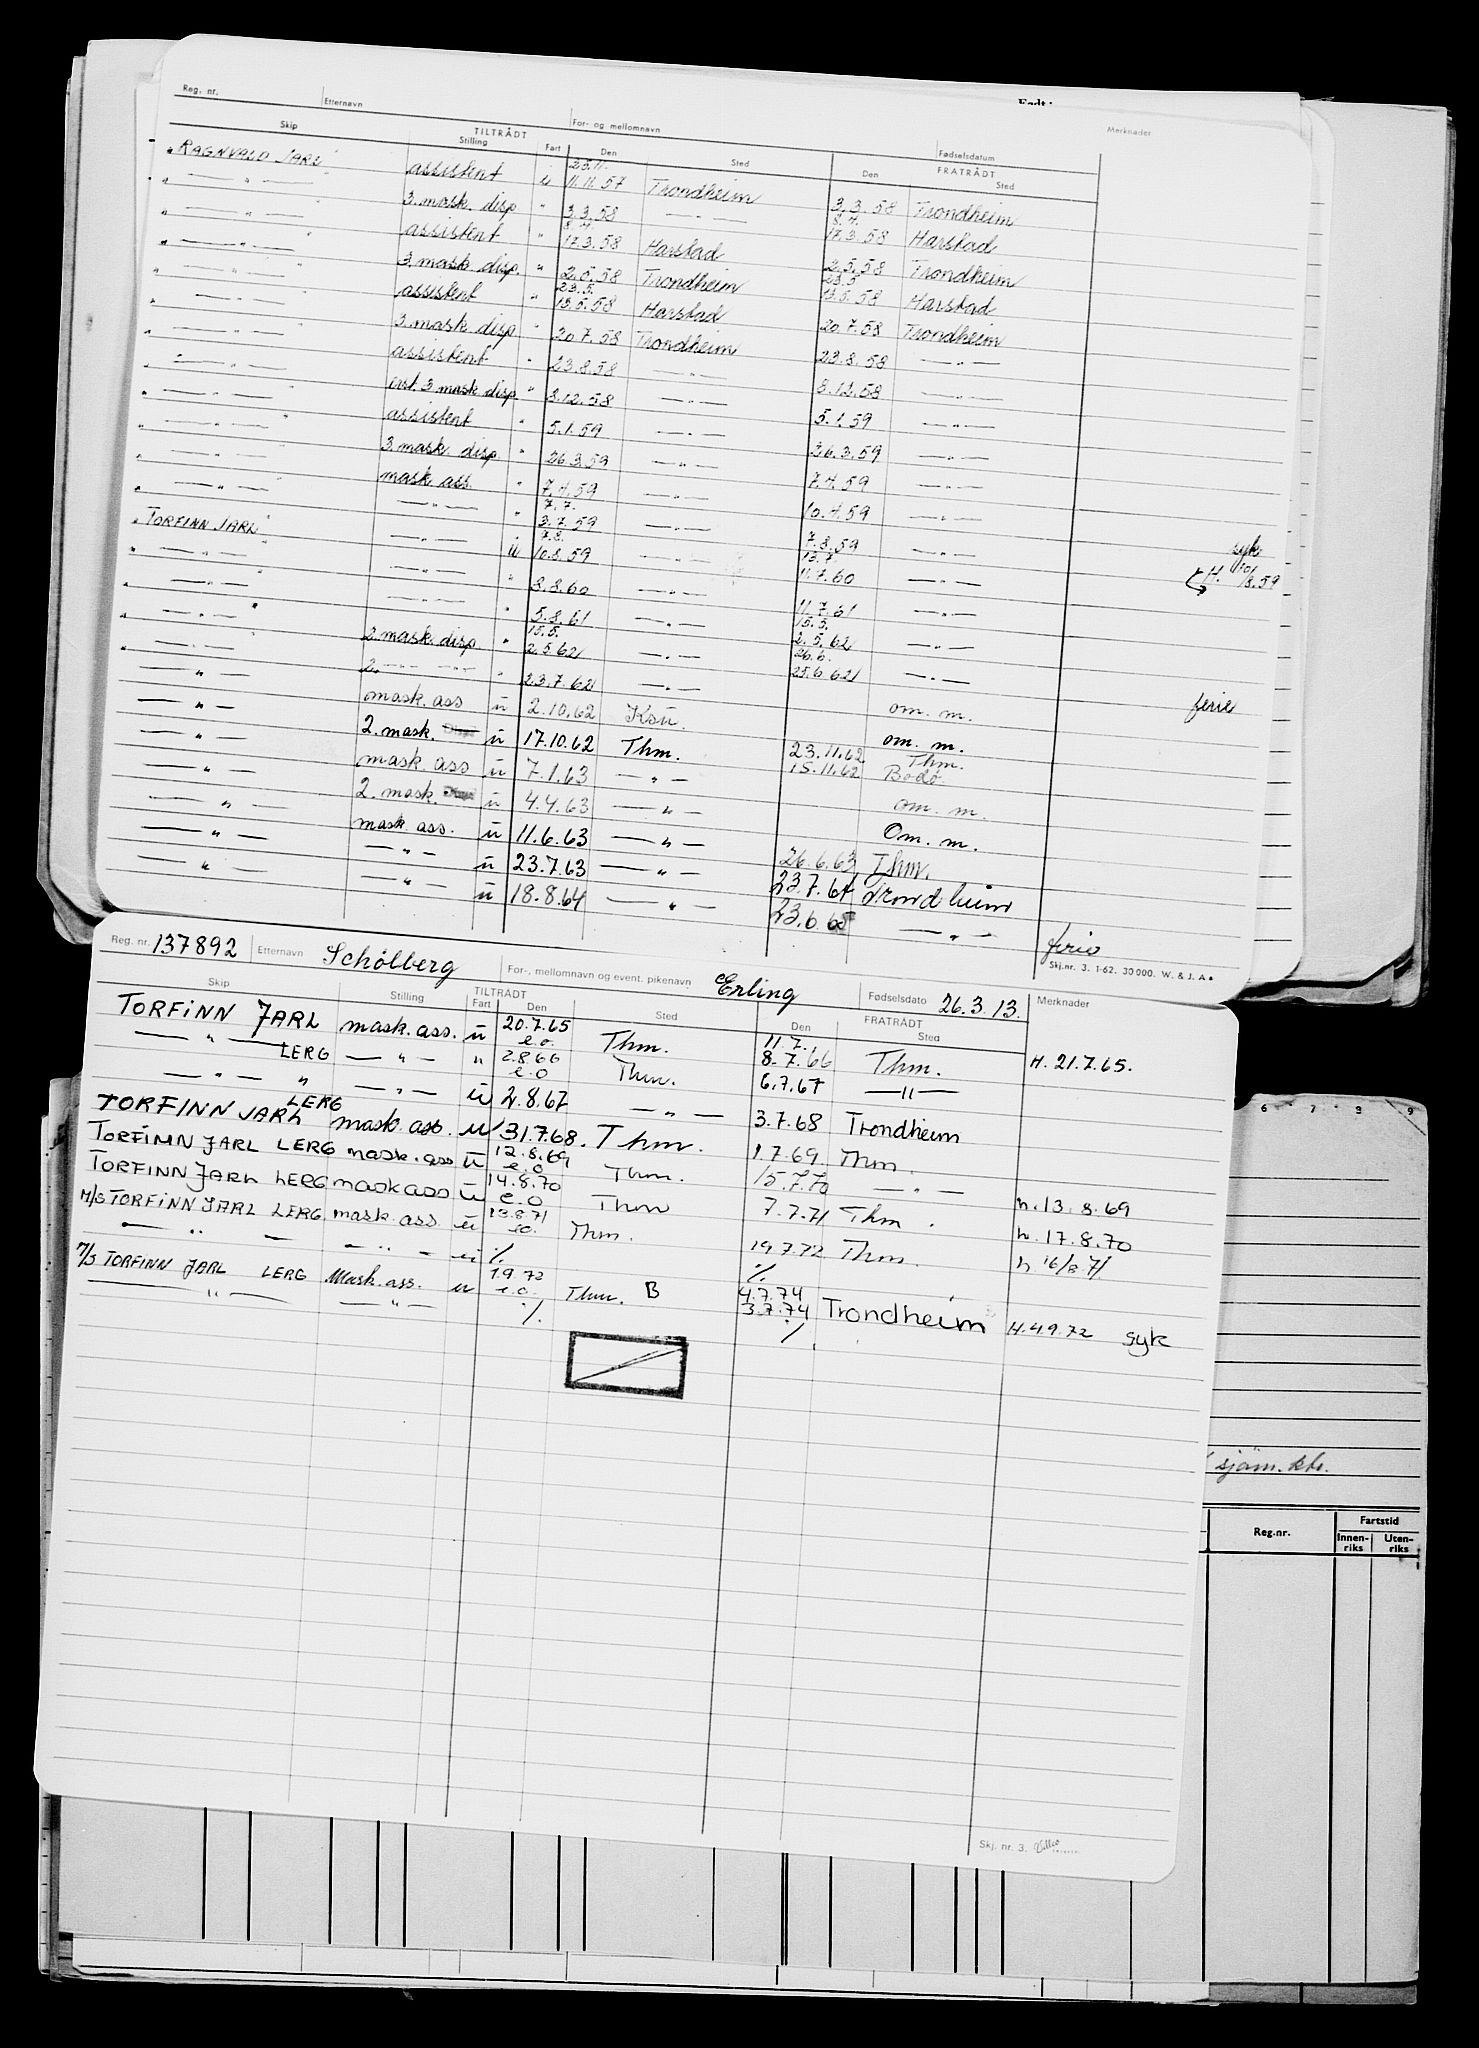 Reg. nr. Etternavn For- og mellomnavn Merknader
Fødselsdatum
Skip TILTRÅDT Stilling Fart Den Sted FRATRÅDT Den Sted
"RAGNVALD JARL" assistent u 25.11. 11.11.57 Trondheim 3.3.58 Trondheim
" — " — 3. mask. disp. " 3.3.58 — " — 8.4. 17.3.58 Harstad
" — " — assistent " 8.4. 17.3.58 Harstad 2.5.58 Trondheim
" — " — 3. mask. disp. " 2.5.58 Trondheim 23.5. 13.5.58 Harstad
" — " — assistent " 23.5. 13.5.58 Harstad 20.7.58 Trondheim
" — " — 3. mask. disp. " 20.7.58 Trondheim 23.8.58 — " —
" — " — assistent " 23.8.58 — " — 8.12.58 — " —
" — " — 3 mask. disp. " 8.12.58 — " — 5.1.59 — " —
" — " — assistent " 5.1.59 — " — 26.3.59 — " —
" — " — 3. mask. disp. " 26.3.59 — " — 7.4.59 — " —
" — " — mask. ass. " 7.4.59 — " — 10.4.59 — " —
" — " — — " — " 7.7. 3.7.59 — " — 7.8.59 — " — syk
"TORFINN JARL" — " — u 7.8. 10.8.59 — " — 13.7. 11.7.60 — " — H. 10/8.59
" — " — — " — " 8.8.60 — " — 11.7.61 — " —
" — " — — " — " 5.8.61 — " — 15.5. 2.5.62 — " —
" — " — 2 mask. disp. " 15.5. 2.5.62 — " — 26.6. 25.6.62 — " —
— " — 2. — " — " 23.7.62 — " — om. m. ferie
— " — mask. ass u 2.10.62 Ksu. om. m.
— " — 2. mask. u 17.10.62 Thm. 23.11.62 Thm. 15.11.62 Bodø.
— " — mask. ass u 7.1.63 — " — om. m.
— " — 2. mask. u 4.4.63 — " — Om. m.
— " — mask. ass. u 11.6.63 — " — 26.6.63 Thm.
— " — — " — u 23.7.63 — " — 23.7.64 Trondheim
— " — — " — u 18.8.64 — " — 23.6.65 — " — ferie
Skj.nr. 3. 1-62. 30 000. W. & J. A.
Reg. nr. 137892 Etternavn Schølberg For-, mellomnavn og event. pikenavn Erling Fødselsdato 26.3.13. Merknader
Skip Stilling TILTRÅDT Fart Den Sted FRATRÅDT Den Sted
TORFINN JARL mask. ass. u 20.7.65 e.o. Thm. 11.7. 8.7.66 Thm. H. 21.7.65.
— " — LERG — " — " 2.8.66 e.o Thm. 6.7.67 — " —
— " — " — " — u 2.8.67 — " — 3.7.68 Trondheim
TORFINN JARL LERG mask. ass. u 31.7.68. Thm. 1.7.69. Thm.
TORFINN JARL LERG mask. ass u 12.8.69 e.o Thm. 15.7.70 — " — h. 13.8.69
TORFINN JARL LERG mask ass u 14.8.70 e.o Thm 7.7.71 Thm. h. 17.8.70
M/S TORFINN JARL LERG mask. ass u 13.8.71 eo. Thm. 19.7.72 Thm. h 16/8.71
— " — — " — u ./. ./.
M/S TORFINN JARL LERG Mask. ass. u 1.9.72 e.o. Thm. B 4.7.74 3.7.74 Trondheim H. 4.9.72 syk
— " — — " — ./. ./.
Skj. nr. 3.
6 7 8 9
sjöm. kb.
Reg.nr. Fartstid
Innen-riks Uten-riks